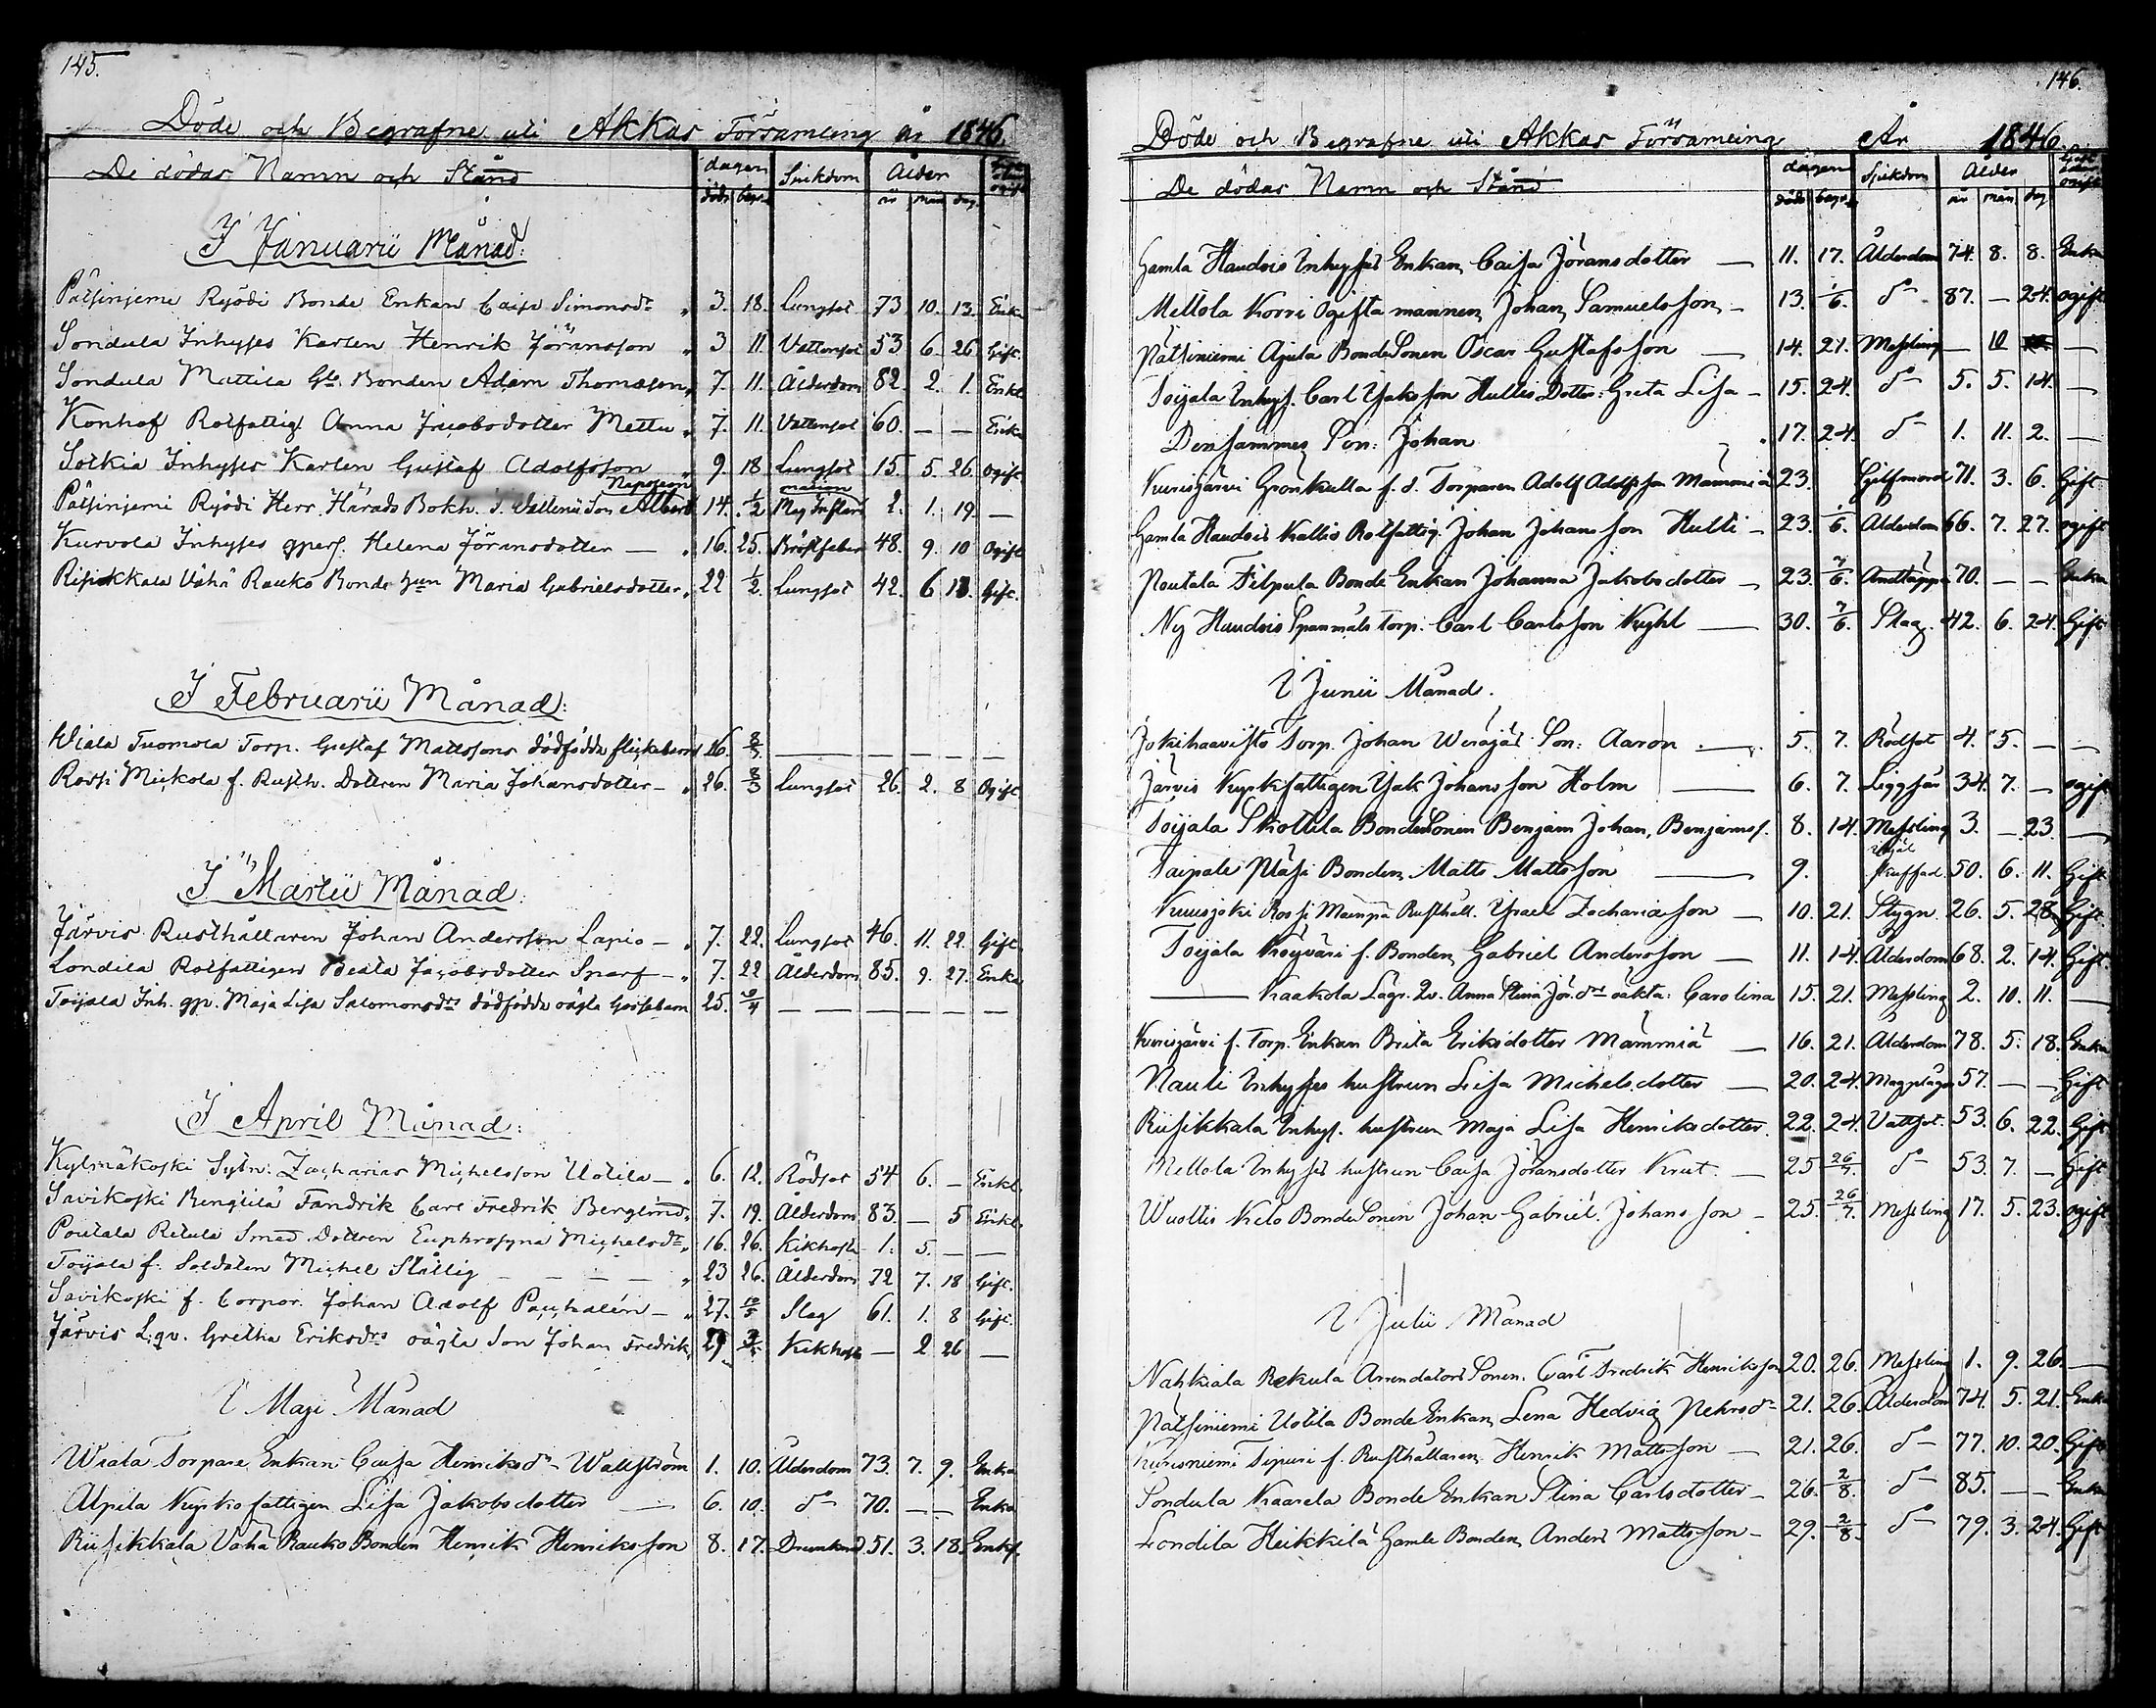 145.
Döde och Begrafne uti Akkas Församling år 1846.
De dödas Namn och Stånd dagen Sjukdom Ålder
döde begr. år mån dag ogift
I Januarii Månad:
Ryödi Bonde Enkan Caisa Simonsdr 3. 18. Lungsot 73 10. 13. Enka
Sondula Inhyses Karlen Henrik Jöransson 3 11. Vattensot 53 6. 26 Gift.
Sondula Mattila Gle Bonden Adam Thomasson 7. 11. Ålderdom 82. 2. 1. Enkl.
Konhof Rotfattig. Anna Jacobsdotter Mettu 7. 11. Vattensot 60. — — Enka
Sotkia Inhyses Karlen Gustaf Adolfsson 9. 18 Lungsot 15. 5. 26. ogift.
Napoleon
Ryödi Herr Härads Bokh. J. Wallenii Son Albert 14. 1/2 2. 1. 19. —
Kurvola Inhyses qpers. Helena Jöransdotter — 16. 25. Bröstfeber 48. 9. 10 Ogift
Vähä Rauko Bonde Maria Gabrielsdotter 22 1/2. Lungsot 42. 6 13. Gift.
I Februarii Månad:
Wiala Tuomola Torp. Gustaf Mattssons dödfödda flickebarn 26. 8/3. — — — — —
Mickola f. Rusth. Dottren Maria Johansdotter — 26. 8/3 Lungsot 26. 2. 8 Ogift
I Martii Månad:
Järvis Rusthållaren Johan Andersson Lapio — 7. 22. Lungsot 46. 11. 22. Gift.
Londila Rotfattigen Beata Jacobsdotter Sparf — 7. 22 Ålderdom 85. 9. 27. Enka
Toijala Inh. qp. Maja Lisa Salomonsdrs dödfödda oägta Gossebarn 25. — — — — —
I April Månad:
Kylmäkoski Sytn. Zacharias Michelsson Uotila — 6. 12. Rödsot 54 6. — Enkl.
Savikoski Bengtilä Fändrik Carl Fredrik Berglind 7. 19. Ålderdom 83. — 5 Enkl.
Poutala Retula Smed Dottren Euphrosyna Michelsdr 16. 26. Kikhosta 1. 5. — —
Toijala f. Soldaten Michel Stållig — — — — 23 26. Ålderdom 72 7. 18 Gift.
Savikoski f. Corpor. Johan Adolf — 27. 10/5 Slag 61. 1. 8 Gift.
Järvis L:qv. Gretha Eriksdrs oägta Son Johan Fredrik 29 Kikhosta — 2 26 —
I Maji Månad
Wiala Torpare Enkan Caisa Henriksdr Wallström 1. 10. Ålderdom 73. 7. 9. Enka
Alpila Kyrko fattigen Lisa Jakobsdotter — 6. 10. do 70. — — Enka
Riisikkala Vähä Rauko Bonden Henrik Henriksson 8. 17. Drunknad 51. 3. 18. Enkl.
146.
Döde och Begrafne uti Akkas Församling År 1846.
De dödas Namn och Stånd dagen Sjukdom Ålder
döde begr. år mån dag ogift
Gamla Haudois Inhyses Enkan, Caisa Jöransdotter — 11. 17. Ålderdom 74. 8. 8. Enka
Mellola Korri Ogifta mannen, Johan Samuelsson — 13. 1/6. do 87. — 24. ogift
Pätsiniemi Ajula Bonde Sonen Oscar Gustafsson — 14. 21. Messling — 10 —
Toijala Inhys. Carl Isaksson Hullis Dotter: Greta Lisa — 15. 24. do 5. 5. 14. —
Densammes Son: Johan 17. 24. do 1. 11. 2. —
Kurisjärvi Grönkulla f. d. Torparen Adolf Adolfsson Mämmiä 23. Sjelfmord 71. 3. 6. Gift
Gamla Haudois Kallis Rotfattig. Johan Johansson Hulli — 23. 1/6. Ålderdom 66. 7. 27. ogift
Poutala Filpula Bonde Enkan Johanna Jakobsdotter — 23. 7/6. Andtäppa 70. — — Enka
Ny Haudois Spannmåls Torp. Carl Carlsson — 30. 7/6. Slag. 42. 6. 24. Gift
I Junii Månad.
Jokihaavisto Torp. Johan Son: Aaron — 5. 7. Rödsot 4. 5. — —
Järvis Kyrkfattigen Isak Johansson Holm — 6. 7. Liggsår 34. 7. — ogift
Toijala Skottila Bonde Sonen Benjam Johan, Benjamss. 8. 14. Messling 3. — 23. —
Taipale Bonden, Matts Mattsson — 9. 50. 6. 11. Gift
Kuusjoki Rossi Mamppa Rusthåll. Israel Zachariasson — 10. 21. Stygn 26. 5. 28. Gift.
Toijala f. Bonden, Gabriel Andersson — 11. 14. Ålderdom 68. 2. 14. Gift.
— Kaakola Lägr. Qv. Anna Stina Jör.drs oäkta: Carolina 15. 21. Messling 2. 10. 11. —
Kurisjärvi f. Torp. Enkan Brita Eriksdotter Mämmiä — 16. 21. Ålderdom 78. 5. 18. Enka
Nauli Inhyses hustrun Lisa Michelsdotter — 20. 24. Magplågor 57. — — Gift
Riisikkala Inhys. hustrun Maja Lisa Henriksdotter. 22. 24. Vattsot. 53. 6. 22. Gift
Mellola Inhyses hustrun Caisa Jöransdotter Krut. — 25 26/7. do 53. 7. — Gift
Wuollis Kielo Bonde Sonen Johan Gabriel Johansson — 25. 26/7. Messling 17. 5. 23. ogift
I Julii Månad
Nahkiala Rekula Arrendators Sonen. Carl Fredrik Henriksson 20. 26. Messling 1. 9. 26. —
Pätsiniemi Uotila Bonde Enkan, Lena Hedvig Pehrsdr 21. 26. Ålderdom 74. 5. 21. Enka
Kurisniemi Sipuri f. Rusthållaren, Henrik Mattsson — 21. 26. do 77. 10. 20. Gift
Sondula Kaarela Bonde Enkan Stina Carlsdotter — 26. 2/8. do 85. — — Enka
Londila Heikkilä Gamle Bonden, Anders Mattsson — 29. 2/8. do 79. 3. 24. Gift